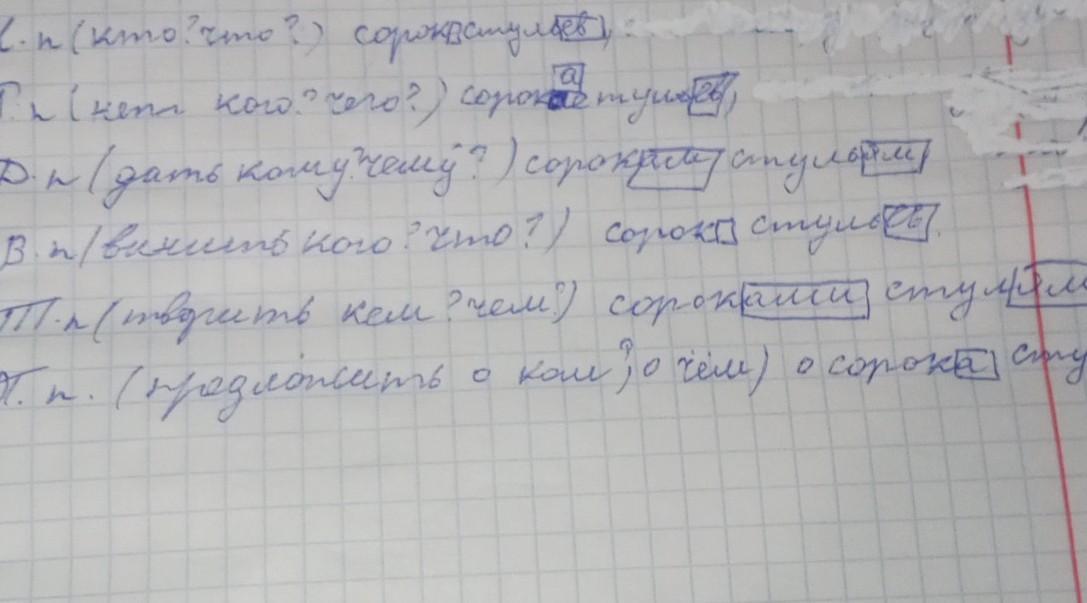 И.п (кто? что?) сорок стульев,
Г.п (нет кого? чего?) сорока стульев,
Д.п (дать кому? чему?) сорокам стульям
В.п (винить кого? что?) сорок стульев.
Т.п (творить кем? чем?) сороками стулям
П.п. (предложить о ком?, о чём) о сорока сту